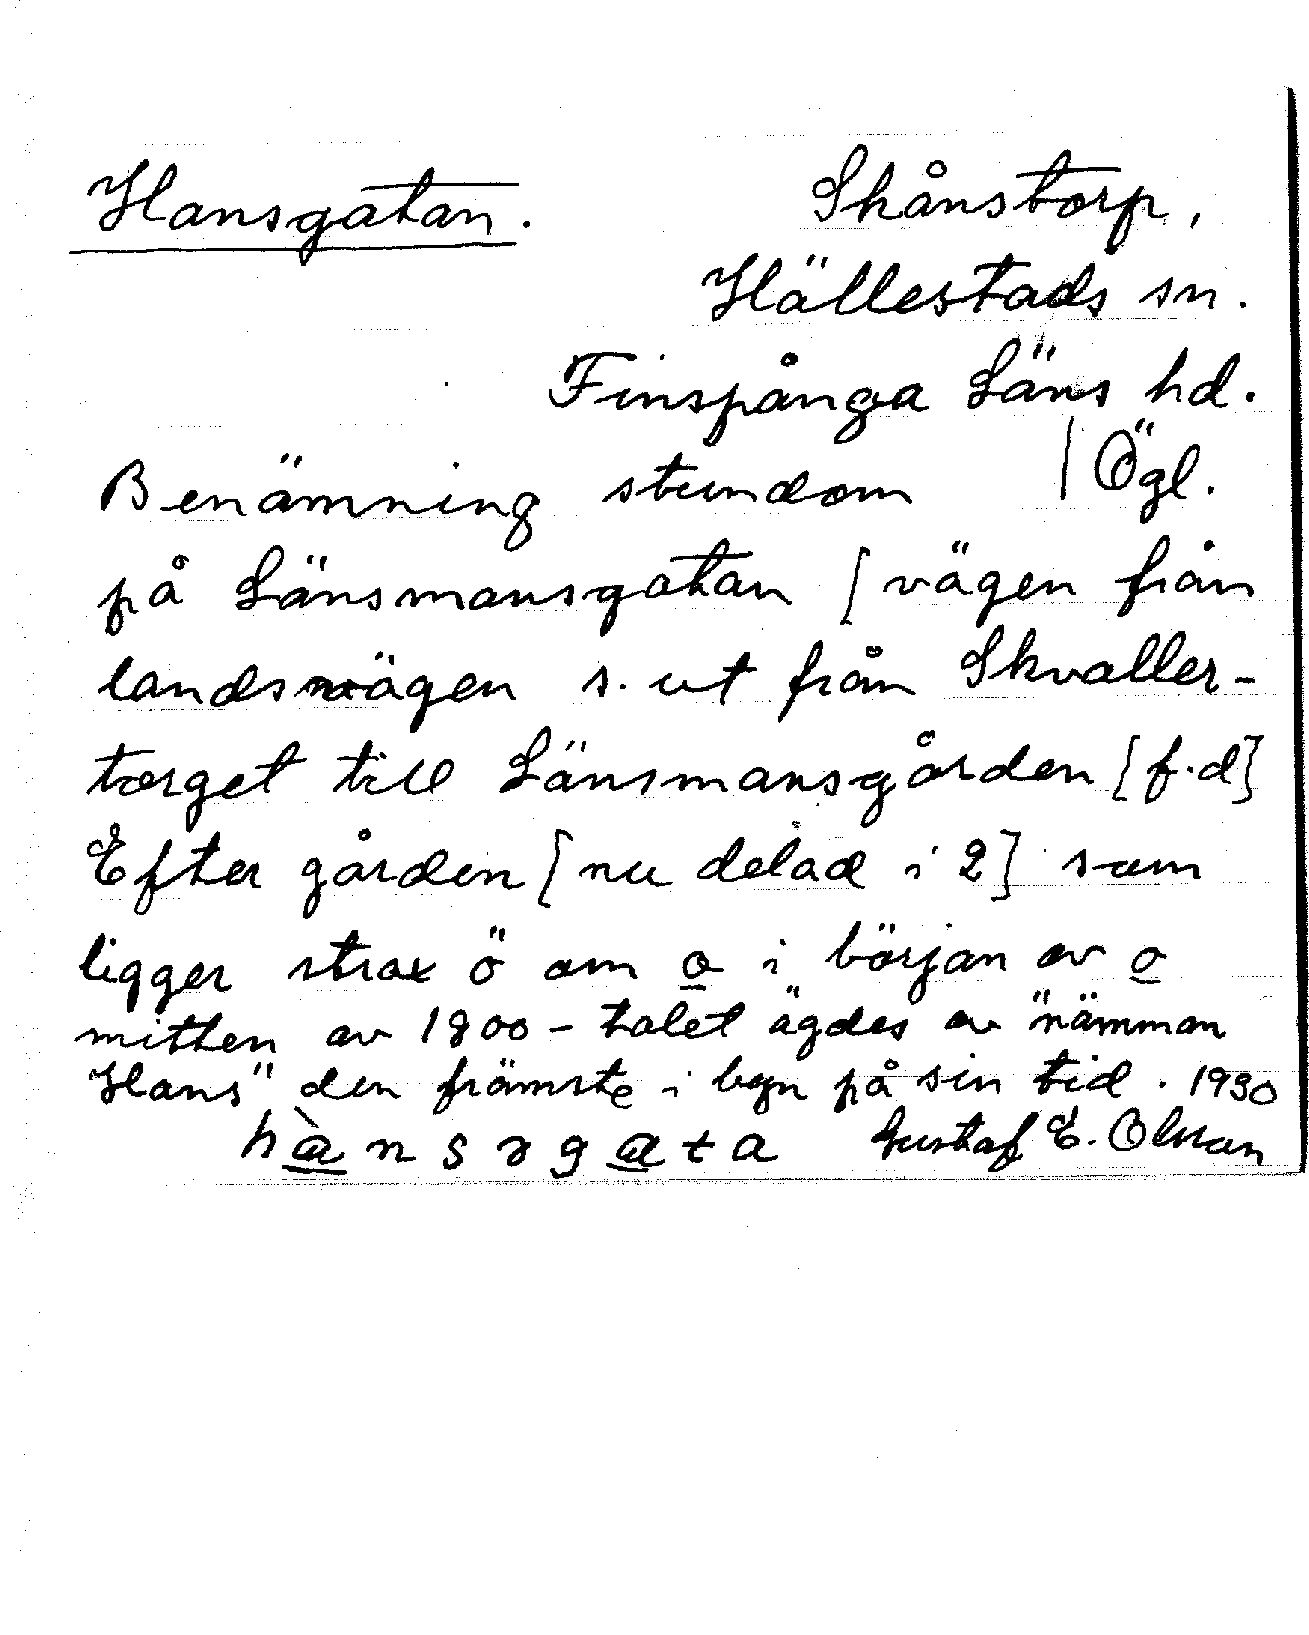 Hansgatan. Skånstorp,
Hällestads sn.
Finspånga Läns hd.
Benämning stundom | Ögl.
på Länsmansgatan [vägen från
landsvägen s. ut från Skvaller-
torget till Länsmansgården [f.d]
Efter gården [nu delad i 2] som
ligger strax ö om o i början av o
mitten av 1800-talet ägdes av "nämman
Hans" den främste i byn på sin tid. 1930
hànsɿgata Gustaf E. Olsson